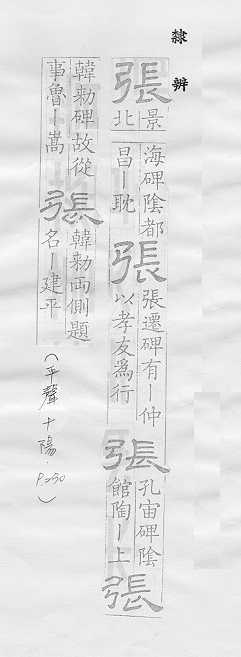 隸辨
張
景
北
海碑陰都
昌ー耽
張
張遷碑有ー仲
以孝友爲行
張
孔宙碑陰
館陶ー上
張
韓勑碑故從
事魯ー嵩
張
韓勑両側題
名ー建平
(平聲十陽.P250)